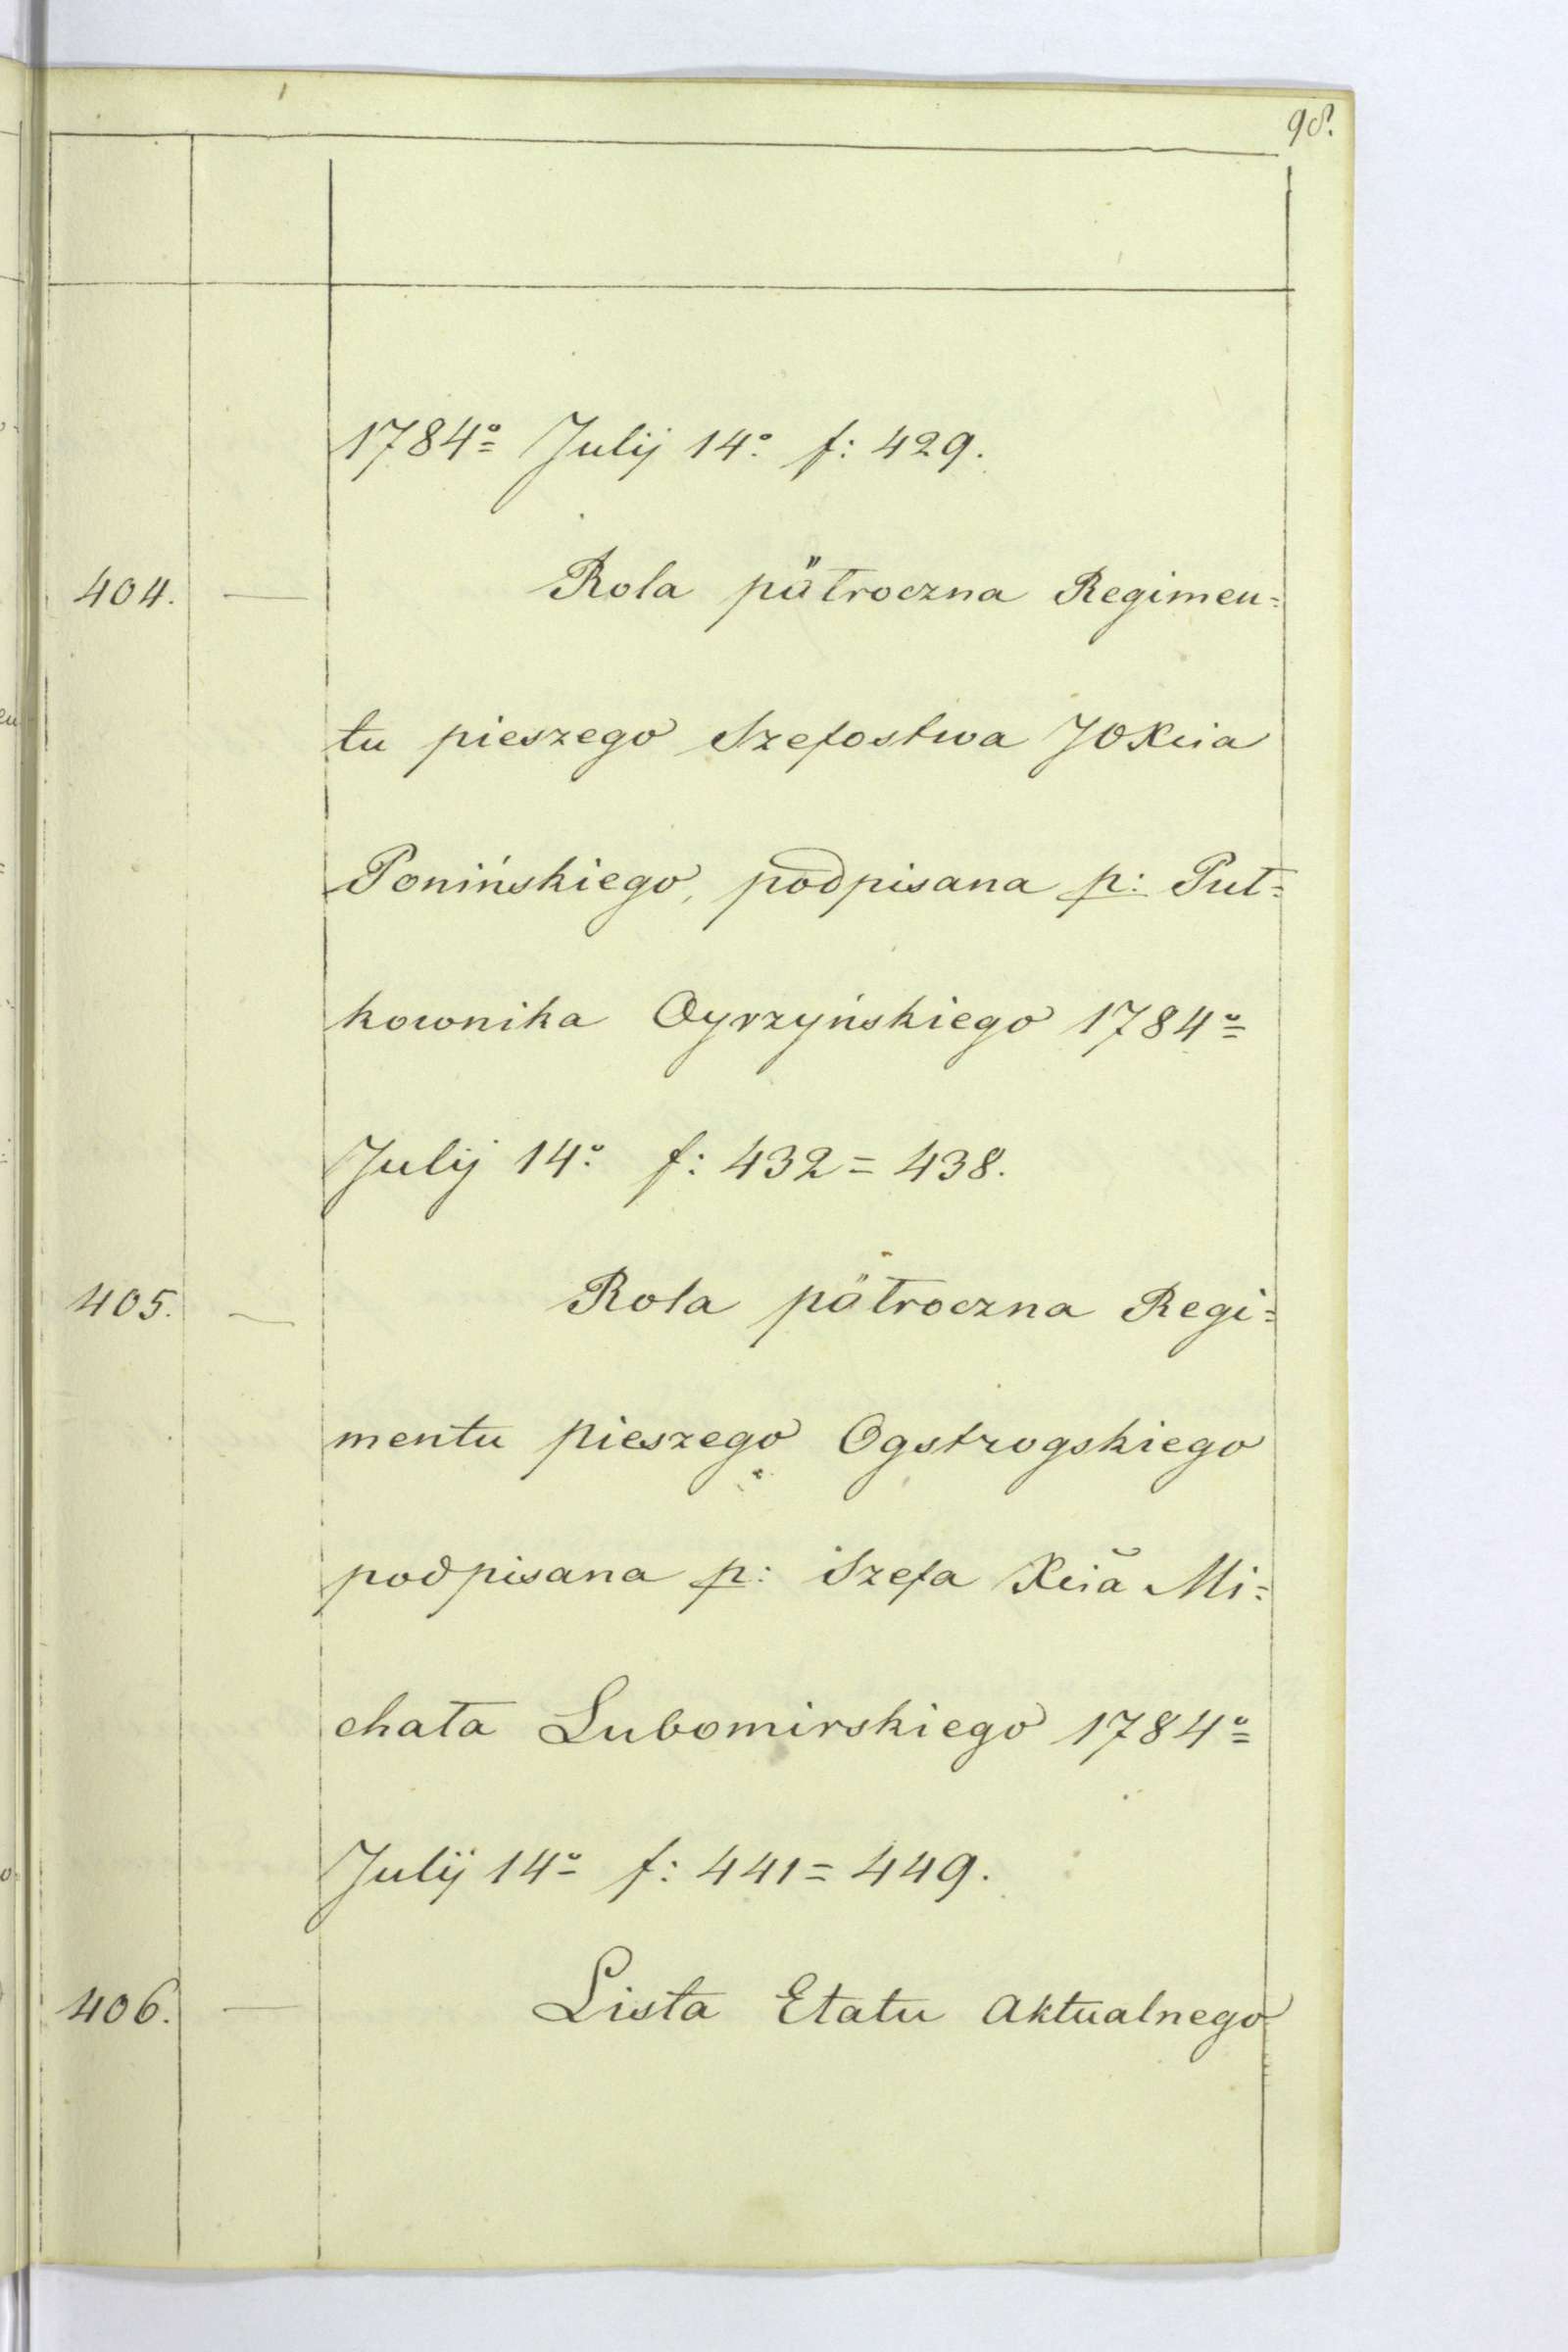 98.
1784º Julij 14º f: 429.
404. — Rola półroczna Regimen=
tu pieszego Szefostwa JOXcia
Ponińskiego, podpisana p: Puł=
kownika Oyrzyńskiego 1784º
Julij 14º f: 432=438.
405. — Rola półroczna Regi=
mentu pieszego Ogstrogskiego
podpisana p: Szefa Xcia Mi=
chała Lubomirskiego 1784º
Julij 14º f: 441=449.
406. — Lista Etatu Aktualnego